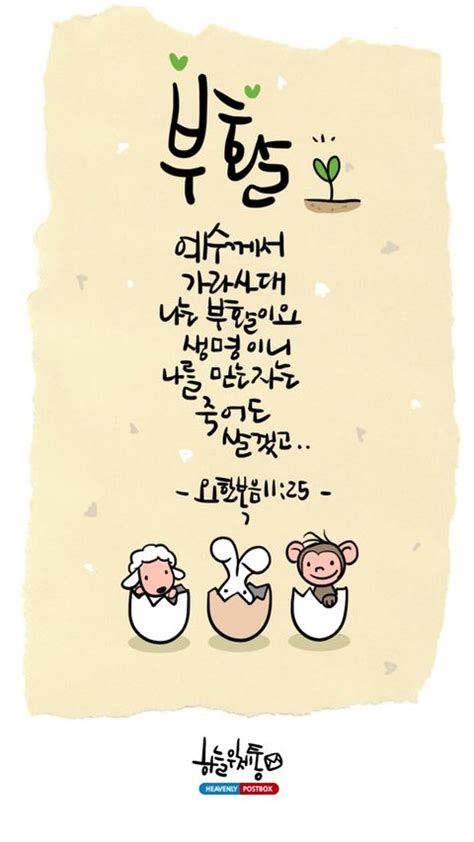 부활
예수께서
가라사대
나는 부활이요
생명이니
나를 믿는자는
죽어도
살겠고..
- 요한복음11:25 -
하늘우체통
HEAVENLY POSTBOX